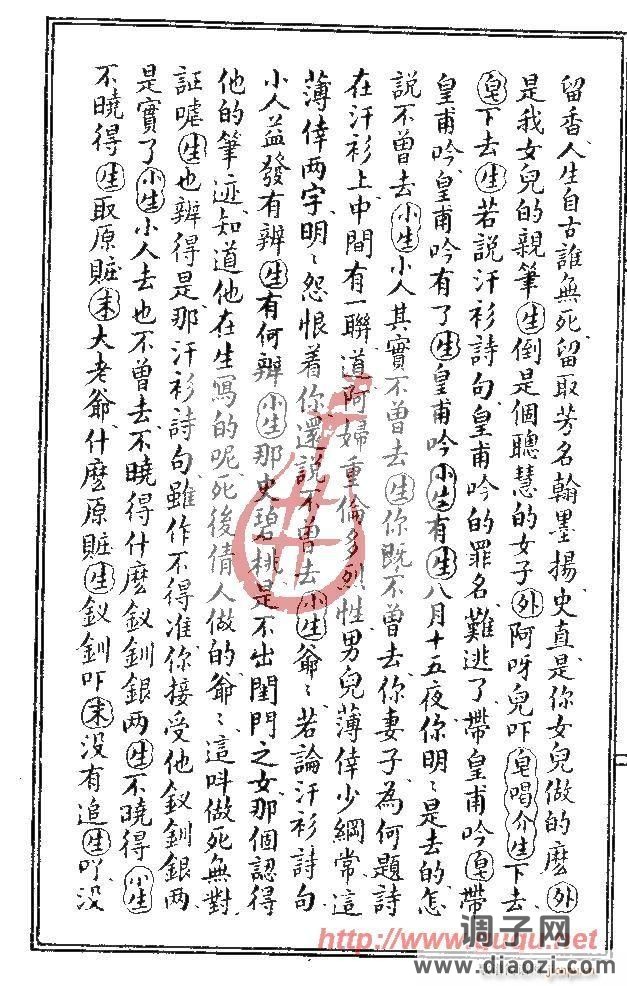 留香人生自古誰無死留取芳名翰墨揚史直是你女兒做的麽外
是我女兒的親筆生倒是個聰慧的女子外阿呀兒吓皂喝介生下去
皂下去生若說汗衫詩句皇甫吟的罪名難逃了帶皇甫吟皂帶
皇甫吟皇甫吟有了生皇甫吟小生有生八月十五夜你明〻是去的怎
說不曾去小生小人其實不曾去生你既不曾去你妻子為何題詩
在汗衫上中間有一聯道阿婦重倫多烈性男兒薄倖少綱常這
薄倖两字明〻怨恨着你還說不曾去小生爺〻若論汗衫詩句
小人益發有辨生有何辨小生那史碧桃是不出閨門之女那個認得
他的筆迹知道他在生寫的呢死後倩人做的爺〻這呌做死無對
証嘘生也辨得是那汗衫詩句雖作不得准你接受他釵釧銀两
是實了小生小人去也不曾去不曉得什麽釵釧銀两生不曉得小生
不曉得生取原賍末大老爺什麽原賍生釵釧吓末没有追生吖没
http://www.gugu.net
调子网
www.diaozi.com